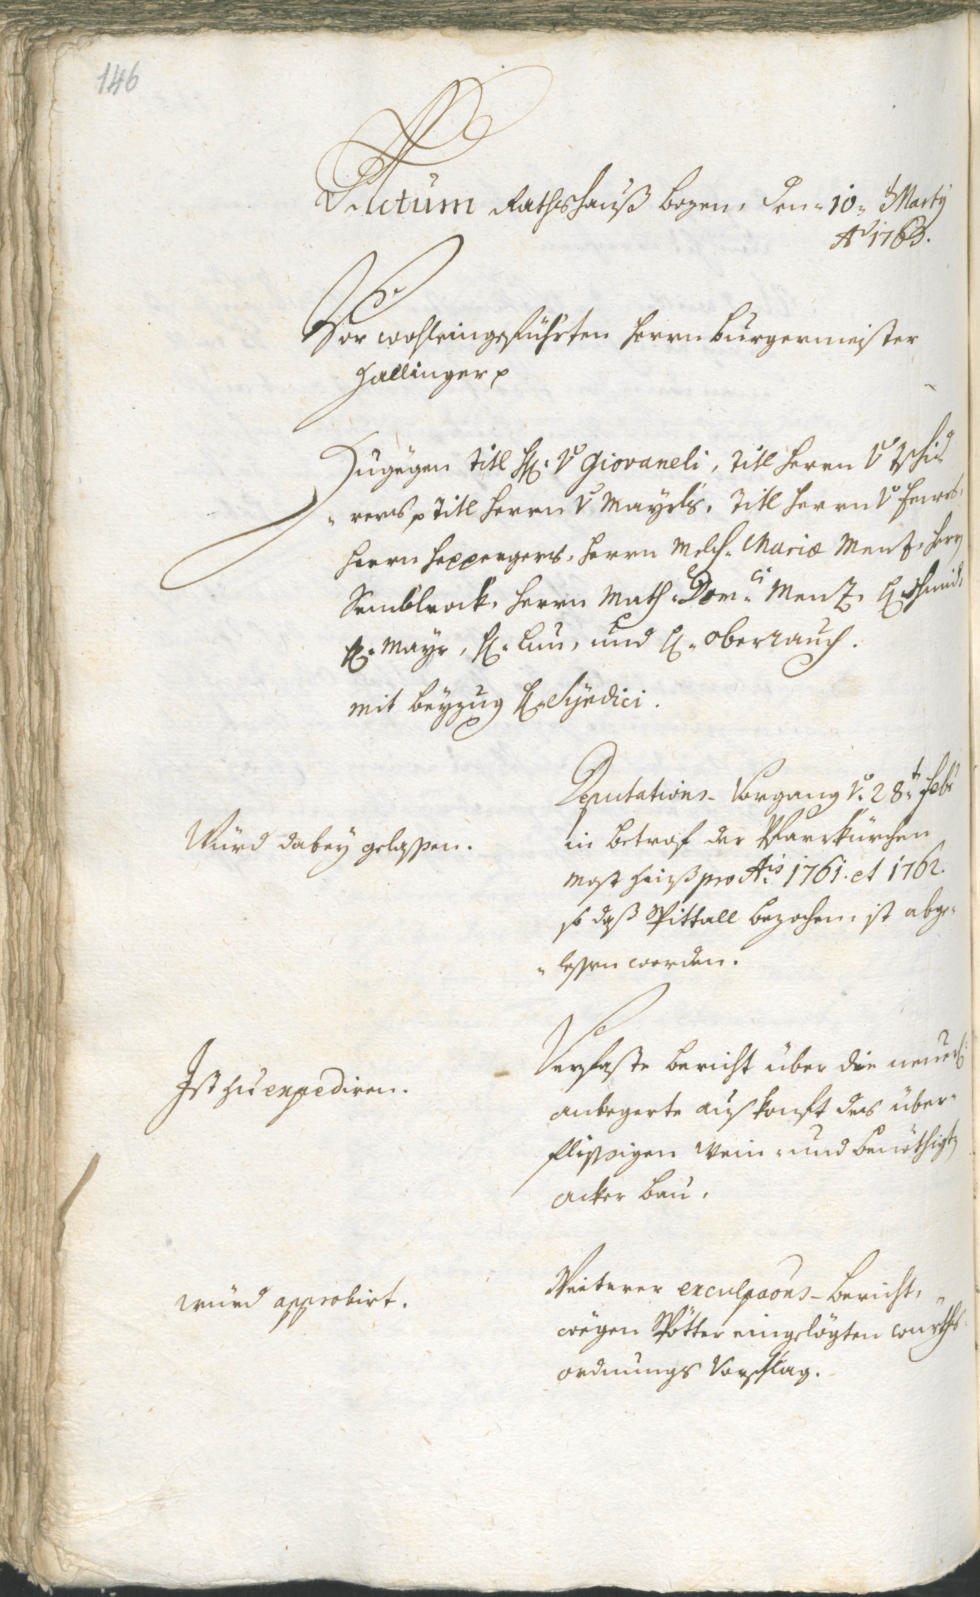 146
Actum Rathshauß Bozen, den 10. Marty
Aõ 1763.
Vor wohleingeführten Herrn Burgermeister
Hallinger p
Zugegen Titl H: v Giovaneli, Titl Herrn v Tschid
rers p Titl Herrn v Mayrls, Titl Herrn v
Herrn Heppergers, Herrn Melch: Mariæ Menz, Herrn
Semblrock, Herrn Math: Dom: Menz, H: Schmid
H: Mayr, H: Lun, und H: Oberrauch.
mit beyzug H: Syndici.
Deputations-Vorgang v: 28t Feb:
in betref der Pfarrkürchen
Most pro Ais 1761. et 1762.
so daß Spittall bezochen, ist abge-
lessen worden.
Würd dabey gelassen.
Verfaste bericht über die neuerl:
anbegerte auskonft des über-
flissigen Wein- und benöthigt
acker bau.
Ist zu expediren.
Weiterer exculpaons-bericht,
wegen Spötter eingelögten
ordnungs Vorschlag.
würd approbirt.